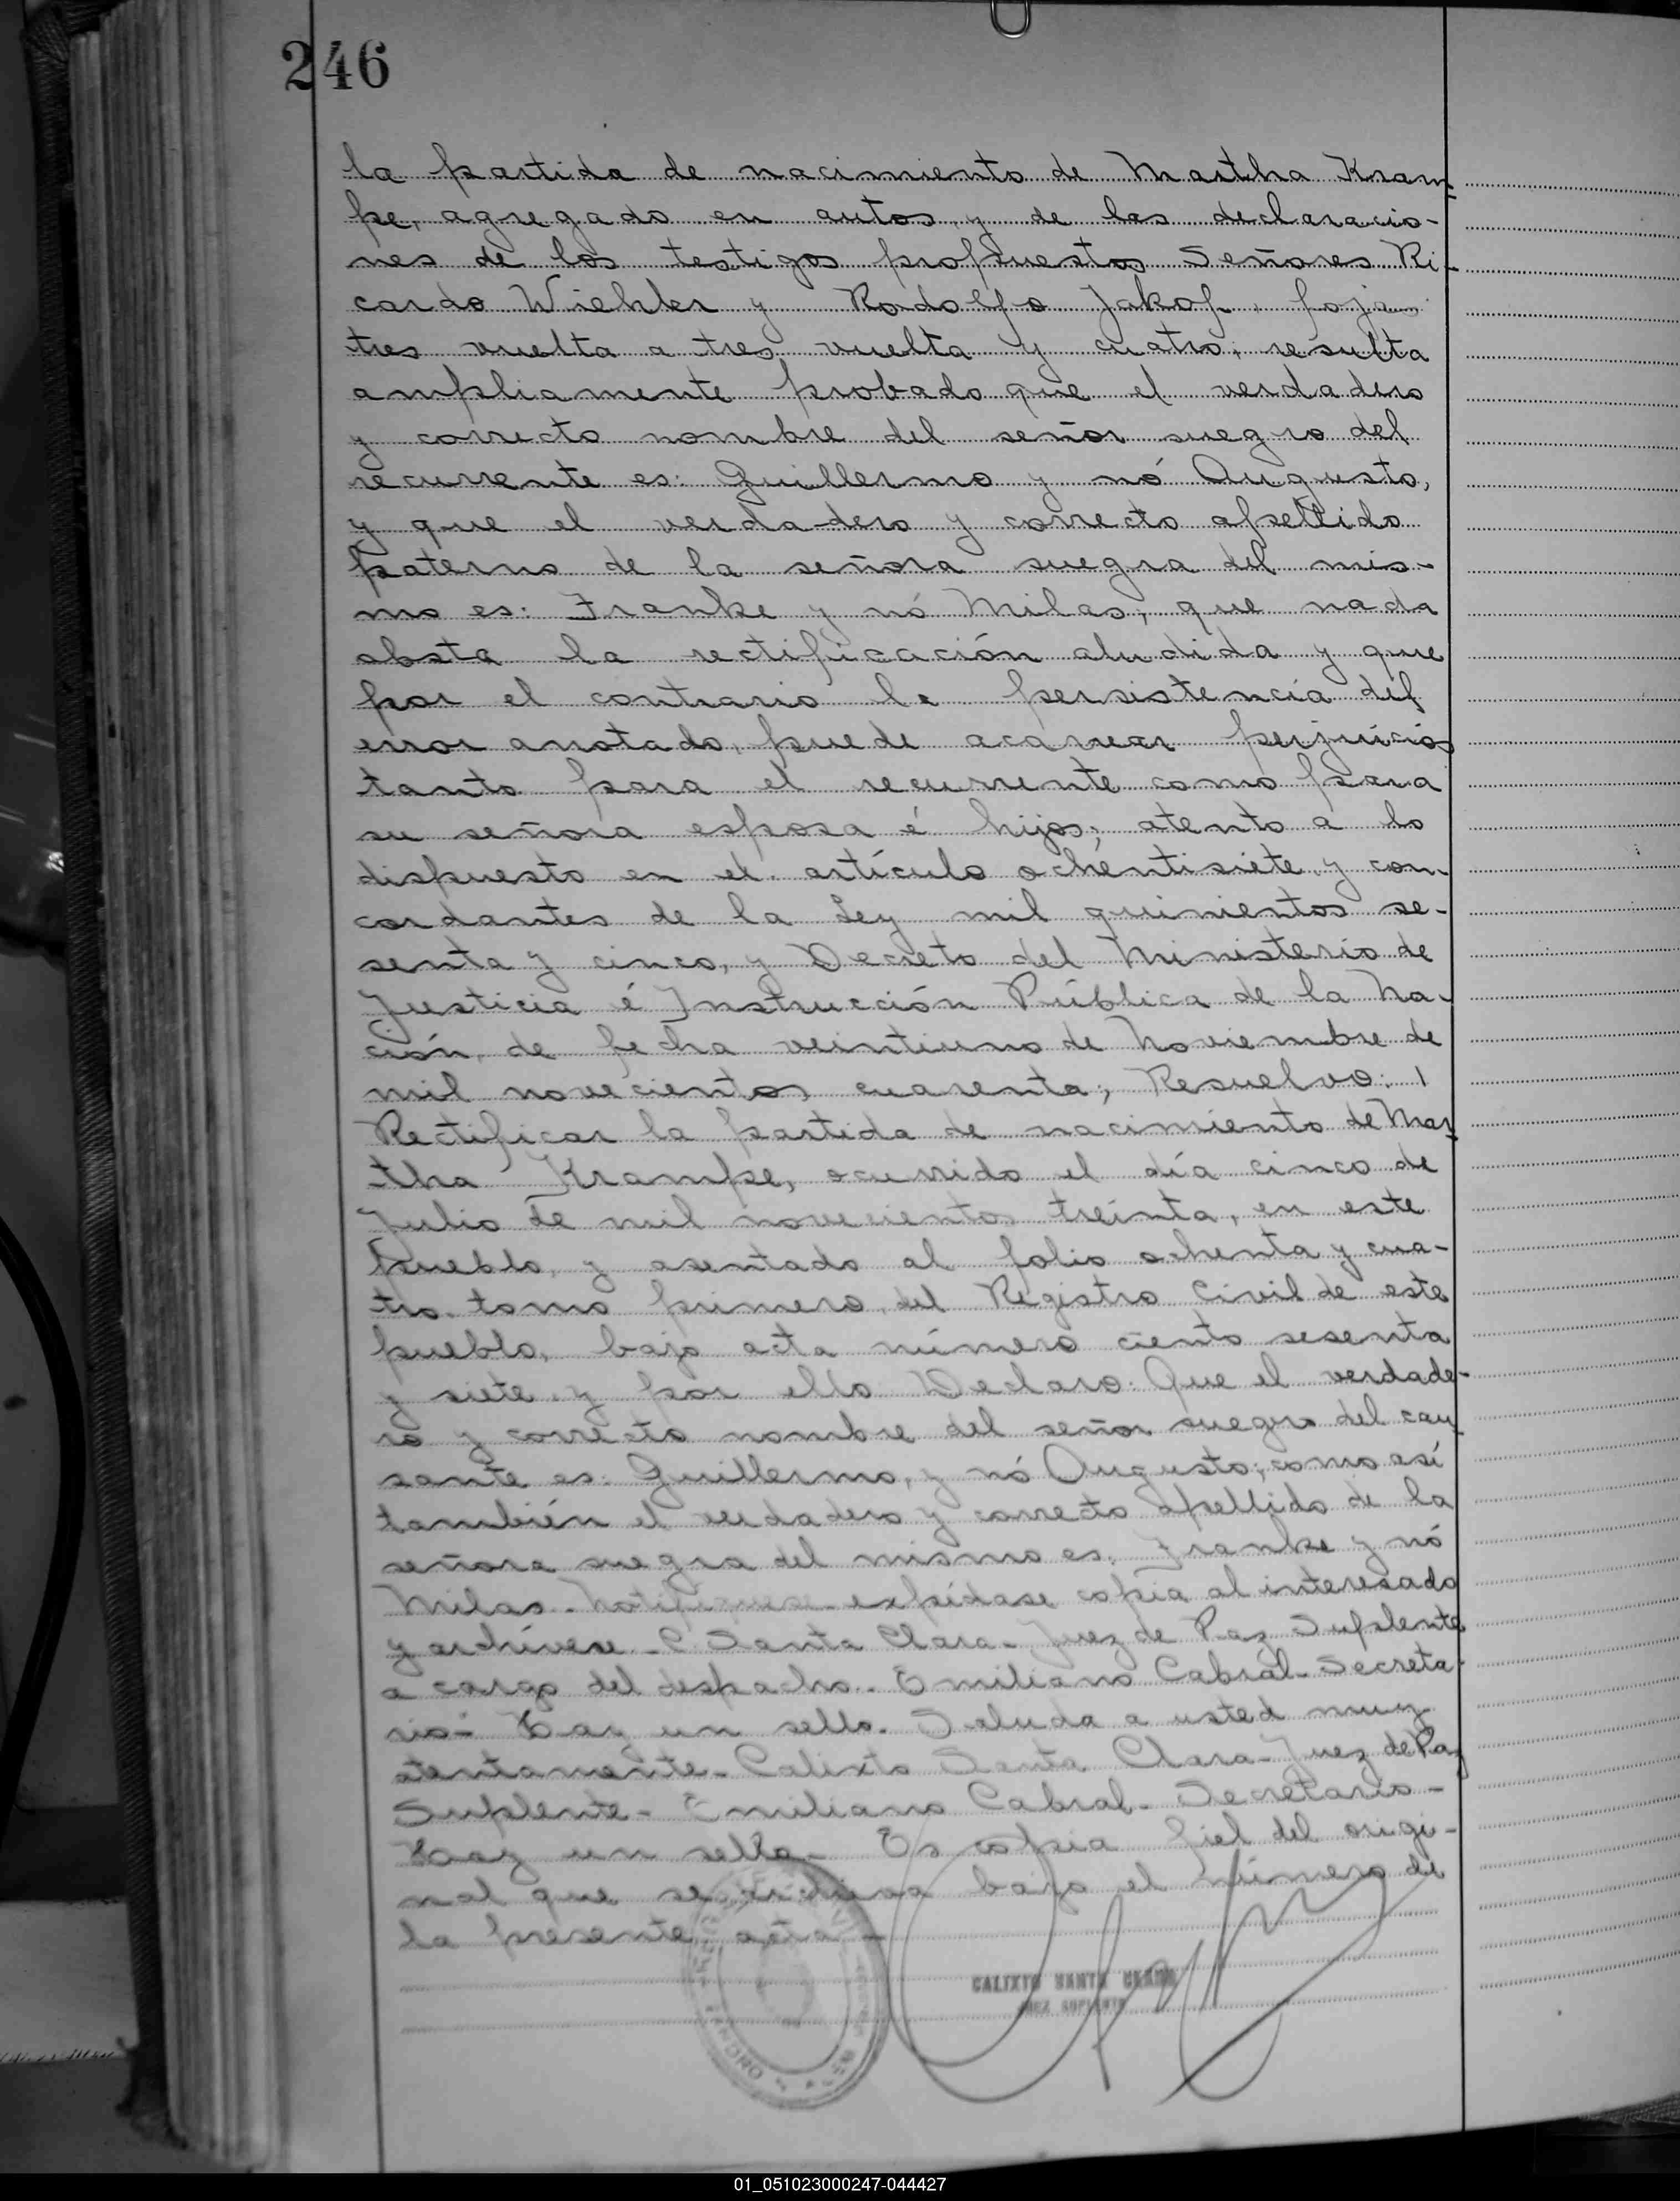 246
la partida de nacimiento de Martha Kram-
pe, agregado en autos, y de las declaracio-
nes de los testigos propuestos Señores Ri-
cardo Wiehler y Rodolfo Jakof, fojas
tres vuelta a tres, vuelta y cuatro, resulta
ampliamente probado que el verdadero
y correcto nombre del señor suegro del
recurrente es: Guillermo y nó Augusto,
y que el verda-dero y correcto apellido
paterno de la señora suegra del mis-
mo es: Franke y nó Milas; que nada
obsta la rectificación aludida y que
por el contrario la persistencia del
error anotado, puede acarrear perjuicios
tanto para el recurrente como para
su señora esposa é hijos; atento a lo
dispuesto en el artículo ochentisiete y con-
cordantes de la Ley mil quinientos se-
senta y cinco, y Decreto del Ministerio de
Justicia é Instrucción Pública de la Na-
ción, de fecha veintiuno de Noviembre de
mil novecientos cuarenta; Resuelvo: 1
Rectificar la partida de nacimiento de Mar-
tha Krampe, ocurrido el día cinco de
Julio de mil novecientos treinta, en este
pueblo, y asentado al folio ochenta y cua-
tro tomo primero, del Registro Civil de este
pueblo, bajo acta número ciento sesenta
y siete y por ello Declaro: Que el verdade-
ro y correcto nombre del señor suegro del cau-
sante es: Guillermo, y nó Augusto; como así
también el verdadero y correcto apellido de la
señora suegra del mismo es: Franke y nó
Milas. Notifíquese expídase copia al interesado
y archívese - C. Santa Clara - Juez de Paz Suplente
a cargo del despacho.- Emiliano Cabral - Secreta-
rio - Hay un sello. Saluda a usted muy
atentamente - Calixto Santa Clara - Juez de Paz
Suplente - Emiliano Cabral - Secretario -
Hay un sello - Es copia fiel del origi-
nal que se archiva bajo el número de
la presente acta -
CALIXTO SANTA CLARA
JUEZ SUPLENTE
01_051023000247-044427